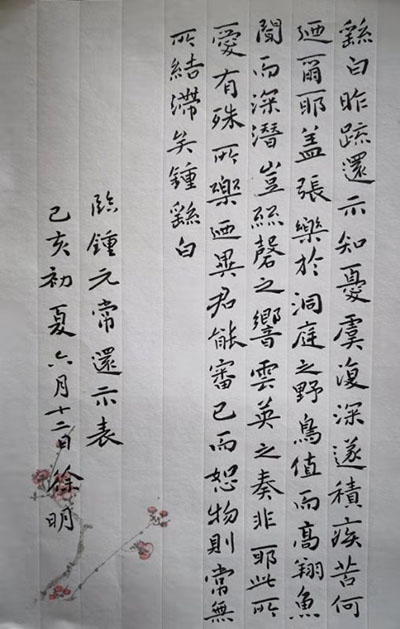 繇白昨疏還示知憂虞復深遂積疾苦何
迺爾耶蓋張樂於洞庭之野鳥值而高翔魚
聞而深潛豈絲磬之響雲英之奏非耶此所
愛有殊所樂迺異君能審己而恕物則常無
所結滯矣鍾繇白
臨鍾元常還示表
己亥初夏六月十二日徐明